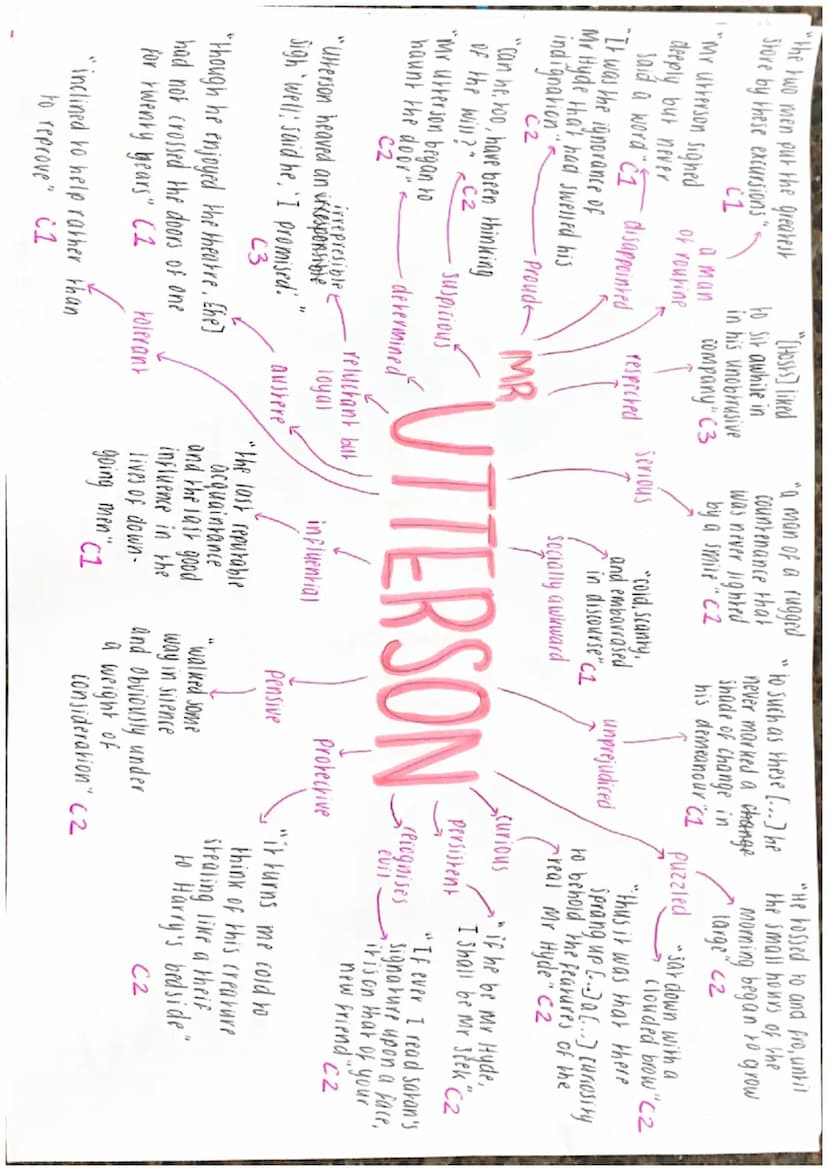 "the two men put the greatest
store by these excursions"
C1
a man
of routine
"Mr utterson signed
deeply but never
said a word" C1
disappointed
"It was the ignorance of
Mr Hyde that had swelled his
indignation"
C2
proud
"can he, too, have been thinking
of the will?" C2
suspicious
"Mr utterson began to
haunt the door"
C2
determined
"utterson heaved an irrepresible
sigh 'well', said he, 'I promised'."
C3
reluctant but
loyal
"though he enjoyed the theatre, [he]
had not crossed the doors of one
for twenty years" C1
austere
"inclined to help rather than
to reprove" C1
tolerant
"[Hosts] liked
to sit awhile in
in his unobtrusive
company" C3
respected
"a man of a rugged
countenance that
was never lighted
by a smile" C2
serious
"cold, scanty,
and embarrased
in discourse" C1
socially awkward
MR
UTTERSON
influential
"the last reputable
acquaintance
and the last good
influence in the
lives of down-
going men"
C1
pensive
"walked some
way in silence
and obviously under
a weight of
consideration" C2
protective
"it turns me cold to
think of this creature
stealing like a theif
to Harry's bedside"
C2
"to such as these [...] he
never marked a change
shade of change in
his demeanour" C1
unprejudiced
"He tossed to and fro, until
the small hours of the
morning began to grow
large" C2
puzzled
"sat down with a
clouded brow" C2
"thus it was that there
sprang up [...] a [...] curiosity
to behold the features of the
real Mr Hyde" C2
curious
"if he be Mr Hyde,
I shall be Mr Seek"
C2
persistent
"If ever I read satan's
signature upon a face,
it is on that of your
new friend"
C2
recognises
evil